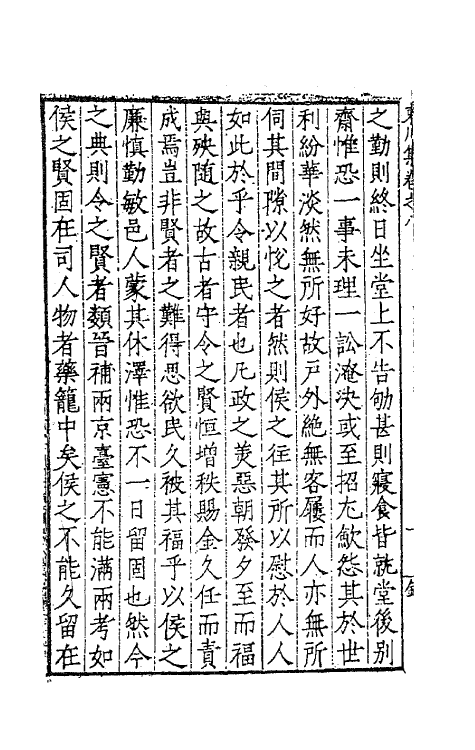 之勤則終日坐堂上不告劬甚則寢食皆就堂後别
齋惟恐一事未理一訟淹决或至招尤歛怨其於世
利紛華淡然無所好故戸外絶無客屨而人亦無所
伺其間隙以恱之者然則侯之徃其所以慰於人人
如此於乎令親民者也凡政之羙惡朝發夕至而福
與殃隨之故古者守令之賢恒增秩賜金久任而責
成焉豈非賢者之難得思欲民久被其福乎以侯之
廉慎勤敏邑人蒙其休澤惟恐不一日留固也然今
之典則令之賢者纇晉補兩京臺憲不能滿兩考如
侯之賢固在司人物者藥籠中矣侯之不能久留在